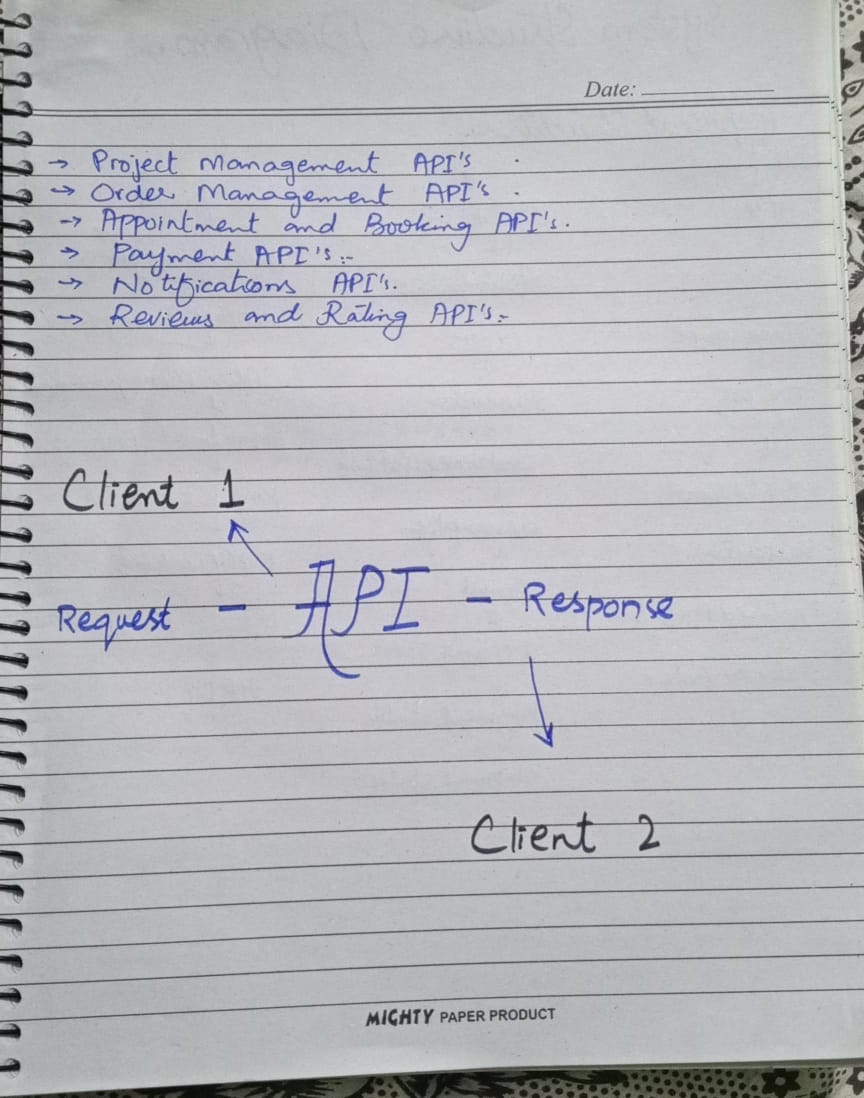 Date:
→ Project Management API's .
→ Order Management API's .
→ Appointment and Booking API's.
→ Payment API's :-
→ Notifications API's.
→ Reviews and Rating API's :-
Client 1
Request - API - Response
Client 2
MIGHTY PAPER PRODUCT